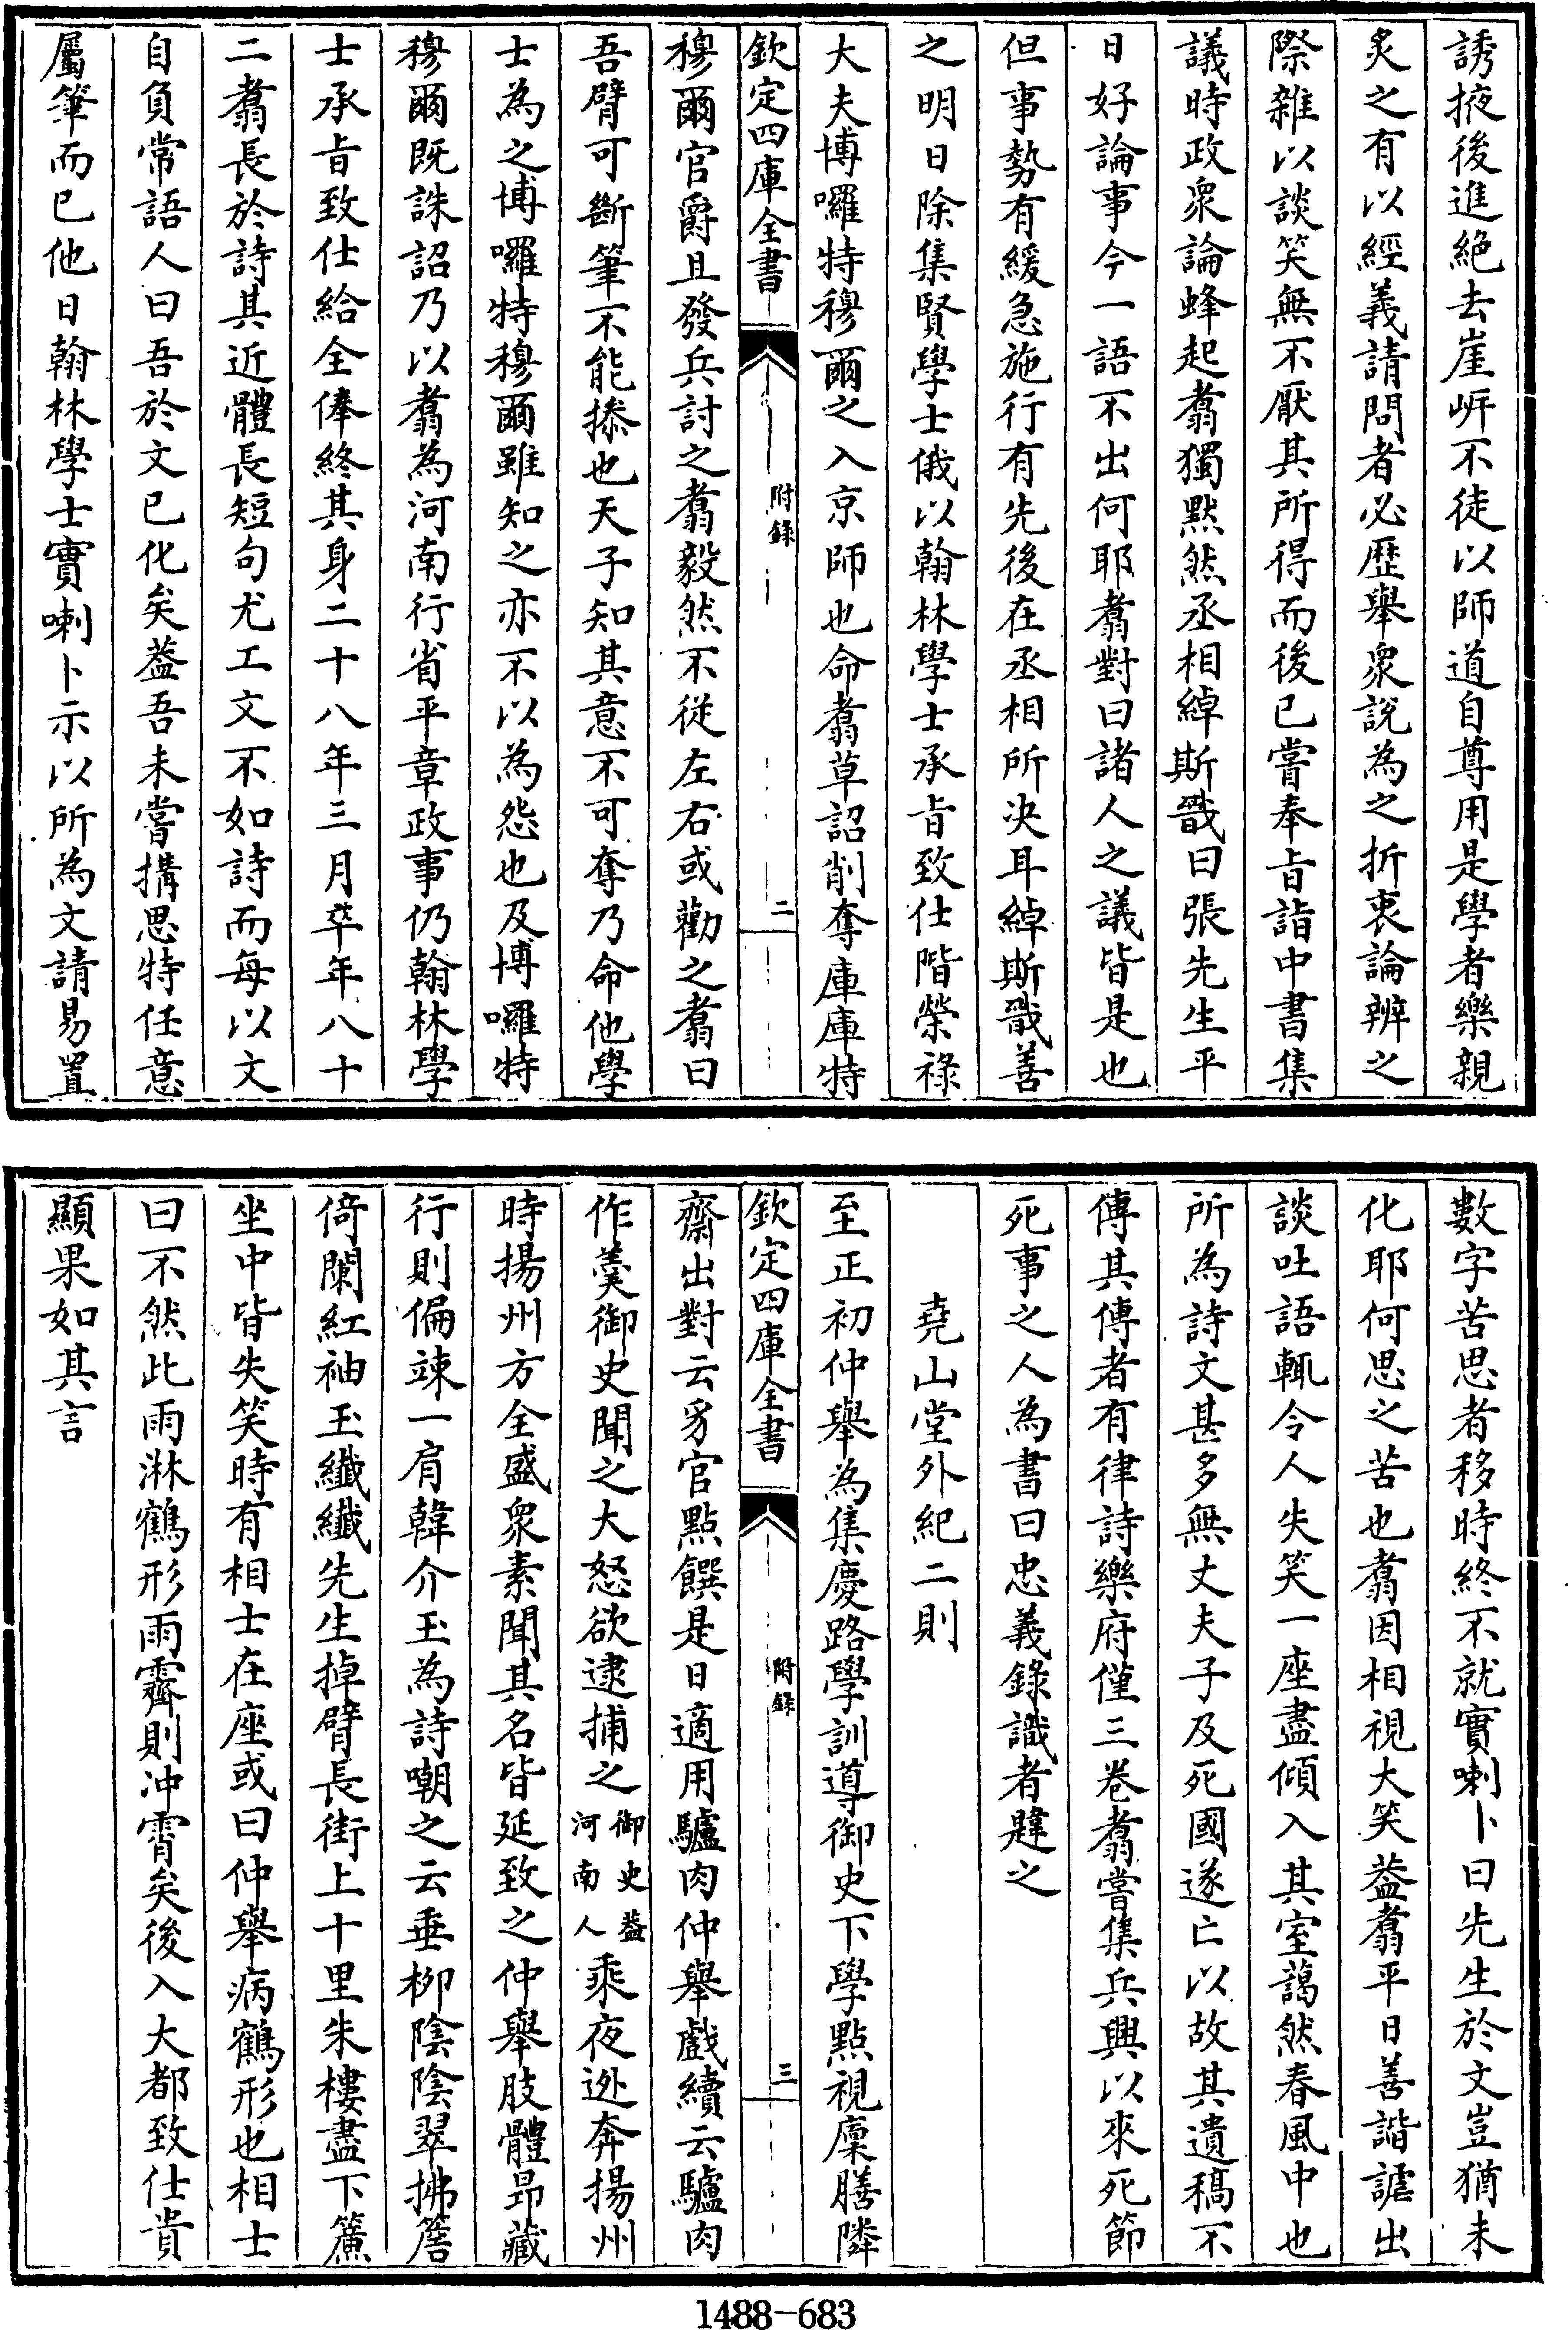 誘掖後進絶去崖岸不徒以師道自尊用是學者樂親
炙之有以經義請問者必歷舉衆説為之折衷論辨之
際雜以談笑無不厭其所得而後已嘗奉旨詣中書集
議時政衆論蜂起翥獨默然丞相綽斯戩曰張先生平
日好論事今一語不出何耶翥對曰諸人之議皆是也
但事勢有緩急施行有先後在丞相所决耳綽斯戩善
之明日除集賢學士俄以翰林學士承旨致仕階榮祿
大夫博囉特穆爾之入京師也命翥草詔削奪庫庫特
欽定四庫全書
附錄
二
穆爾官爵且發兵討之翥毅然不從左右或勸之翥曰
吾臂可斷筆不能搽也天子知其意不可奪乃命他學
士為之博囉特穆爾雖知之亦不以為怨也及博囉特
穆爾既誅詔乃以翥為河南行省平章政事仍翰林學
士承旨致仕給全俸終其身二十八年三月卒年八十
二翥長於詩其近體長短句尤工文不如詩而每以文
自負常語人曰吾於文已化矣葢吾未嘗搆思特任意
屬筆而已他日翰林學士實喇卜示以所為文請易置
數字苦思者移時終不就實喇卜曰先生於文豈猶未
化耶何思之苦也翥因相視大笑葢翥平日善諧謔出
談吐語輒令人失笑一座盡傾入其室藹然春風中也
所為詩文甚多無丈夫子及死國遂亡以故其遺稿不
傳其傳者有律詩樂府僅三卷翥嘗集兵興以來死節
死事之人為書曰忠義錄識者韙之
堯山堂外紀二則
至正初仲舉為集慶路學訓導御史下學點視廩膳隣
欽定四庫全書
附錄
三
齋出對云豸官點饌是日適用驢肉仲舉戲續云驢肉
作羮御史聞之大怒欲逮捕之御史葢河南人乘夜逃奔揚州
時揚州方全盛衆素聞其名皆延致之仲舉肢體昂藏
行則偏竦一肩韓介玉為詩嘲之云垂栁陰陰翠拂簷
倚闌紅袖玉纖纖先生掉臂長街上十里朱樓盡下簾
坐中皆失笑時有相士在座或曰仲舉病鶴形也相士
曰不然此雨淋鶴形雨霽則冲霄矣後入大都致仕貴
顯果如其言
1488-683